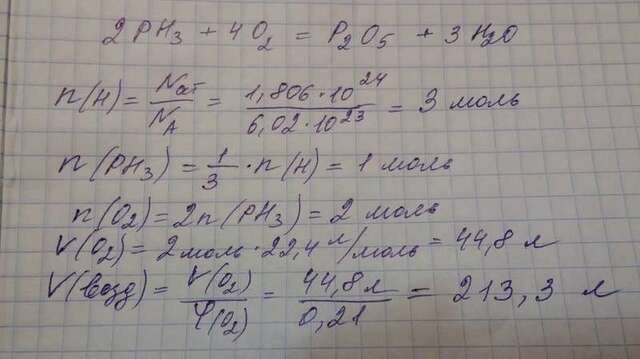 2PH₃ + 4O₂ = P₂O₅ + 3H₂O
n(H) = Nат/N_A = 1,806·10²⁴/6,02·10²³ = 3 моль
n(PH₃) = 1/3 · n(H) = 1 моль
n(O₂) = 2n(PH₃) = 2 моль
V(O₂) = 2 моль · 22,4 л/моль = 44,8 л
V(возд) = V(O₂)/φ(O₂) = 44,8 л/0,21 = 213,3 л